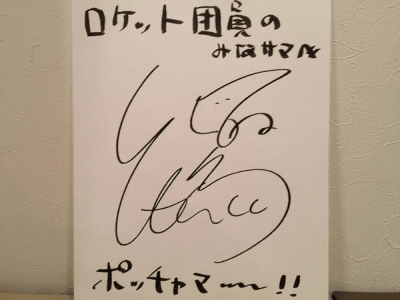 ロケット団員の
みなサマへ
ポッチャマ〜〜!!